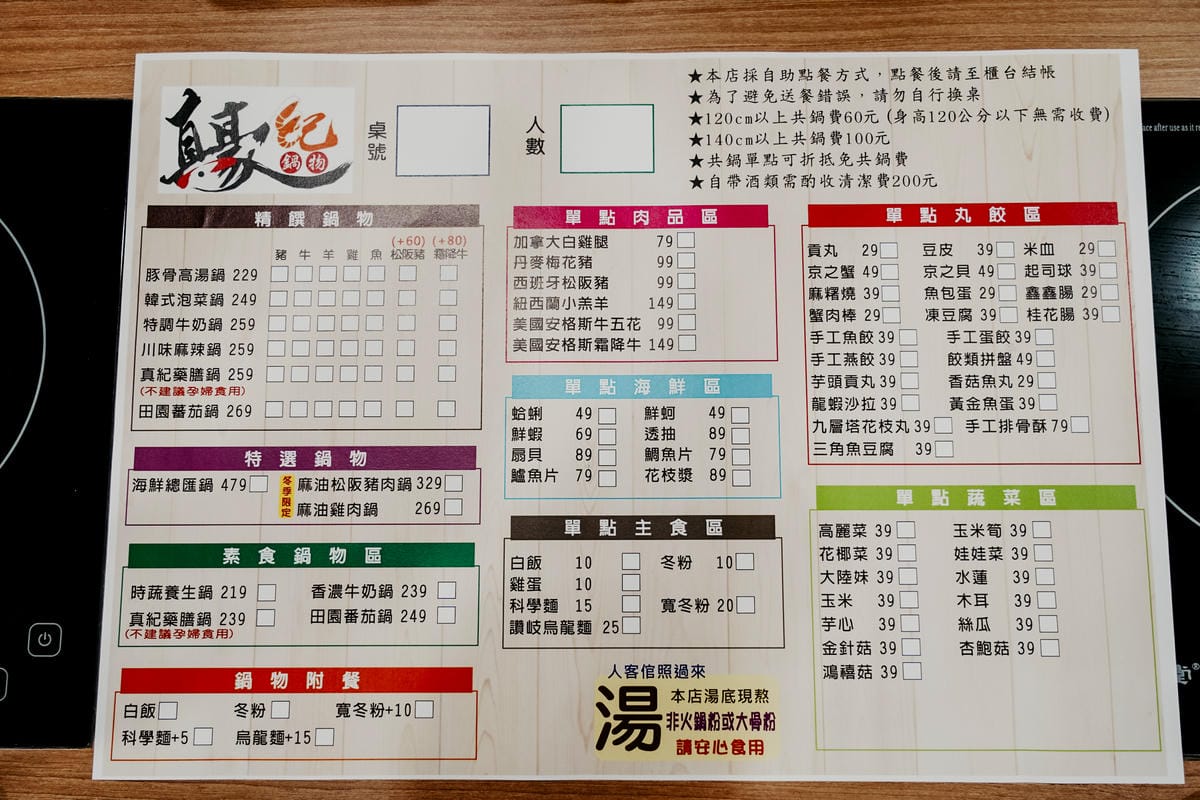 真紀
鍋物
桌號
人數
★本店採自助點餐方式，點餐後請至櫃台結帳
★為了避免送餐錯誤，請勿自行換桌
★120cm以上共鍋費60元 (身高120公分以下無需收費)
★140cm以上共鍋費100元
★共鍋單點可折抵免共鍋費
★自帶酒類需酌收清潔費200元
精饌鍋物
(+60) (+80)
豬 牛 羊 雞 魚 松阪豬 霜降牛
豚骨高湯鍋 229
韓式泡菜鍋 249
特調牛奶鍋 259
川味麻辣鍋 259
真紀藥膳鍋 259
(不建議孕婦食用)
田園蕃茄鍋 269
特選鍋物
海鮮總匯鍋 479
冬季限定
麻油松阪豬肉鍋 329
麻油雞肉鍋 269
素食鍋物區
時蔬養生鍋 219 香濃牛奶鍋 239
真紀藥膳鍋 239 田園蕃茄鍋 249
(不建議孕婦食用)
鍋物附餐
白飯 冬粉 寬冬粉+10
科學麵+5 烏龍麵+15
單點肉品區
加拿大白雞腿 79
丹麥梅花豬 99
西班牙松阪豬 99
紐西蘭小羔羊 149
美國安格斯牛五花 99
美國安格斯霜降牛 149
單點海鮮區
蛤蜊 49 鮮蚵 49
鮮蝦 69 透抽 89
扇貝 89 鯛魚片 79
鱸魚片 79 花枝漿 89
單點主食區
白飯 10 冬粉 10
雞蛋 10
科學麵 15 寬冬粉 20
讚岐烏龍麵 25
人客倌照過來
湯
本店湯底現熬
非火鍋粉或大骨粉
請安心食用
單點丸餃區
貢丸 29 豆皮 39 米血 29
京之蟹 49 京之貝 49 起司球 39
麻糬燒 39 魚包蛋 29 鑫鑫腸 29
蟹肉棒 29 凍豆腐 39 桂花腸 39
手工魚餃 39 手工蛋餃 39
手工燕餃 39 餃類拼盤 49
芋頭貢丸 39 香菇魚丸 29
龍蝦沙拉 39 黃金魚蛋 39
九層塔花枝丸 39 手工排骨酥 79
三角魚豆腐 39
單點蔬菜區
高麗菜 39 玉米筍 39
花椰菜 39 娃娃菜 39
大陸妹 39 水蓮 39
玉米 39 木耳 39
芋心 39 絲瓜 39
金針菇 39 杏鮑菇 39
鴻禧菇 39